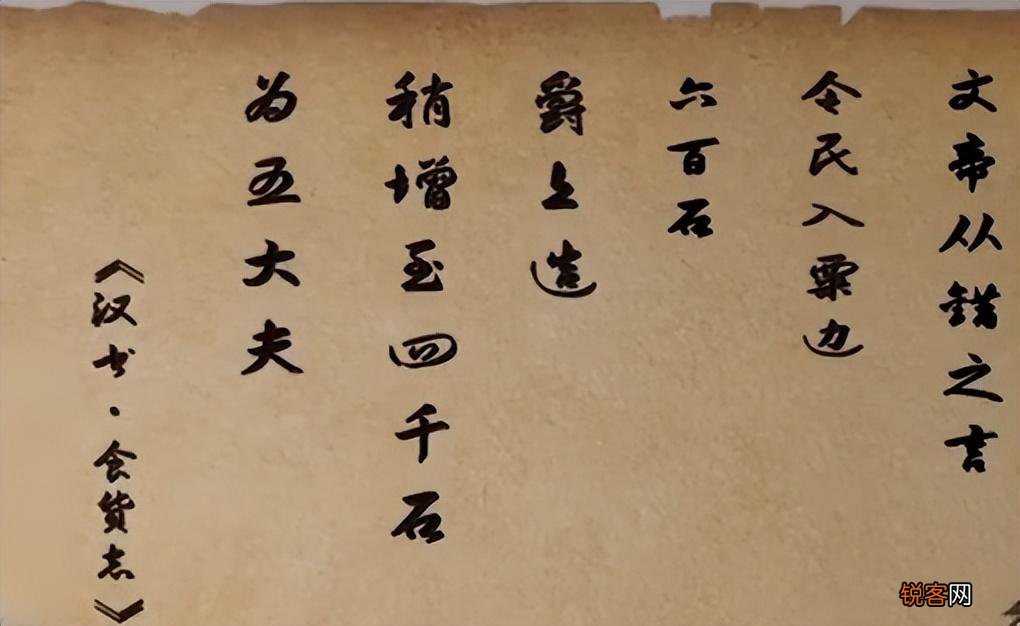 文帝从错之言
令民入粟边
六百石
爵上造
稍增至四千石
为五大夫
《汉书·食货志》
锐客网